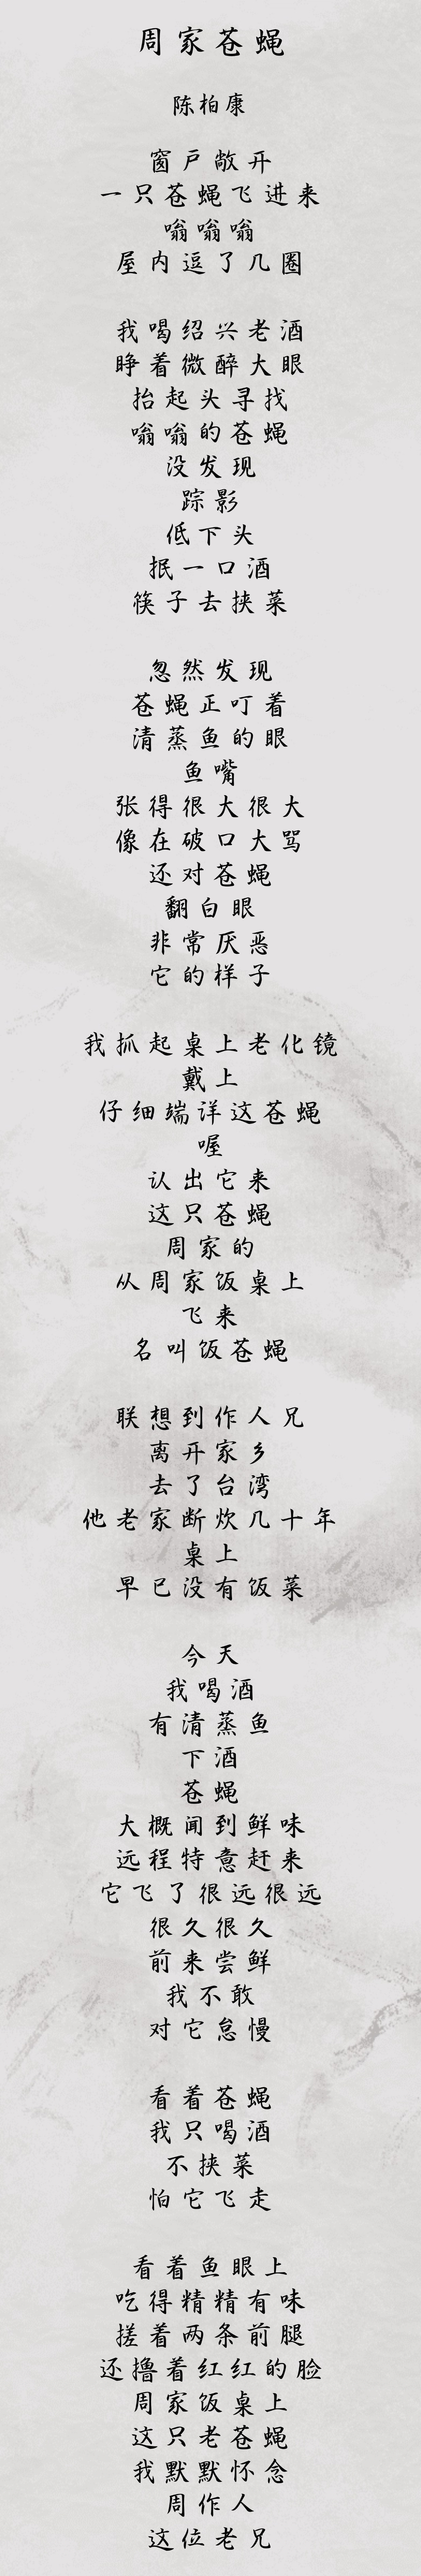 周家苍蝇
陈柏康
窗户敞开
一只苍蝇飞进来
嗡嗡嗡
屋内逗了几圈
我喝绍兴老酒
睁着微醉大眼
抬起头寻找
嗡嗡的苍蝇
没发现
踪影
低下头
抿一口酒
筷子去挟菜
忽然发现
苍蝇正叮着
清蒸鱼的眼
鱼嘴
张得很大很大
像在破口大骂
还对苍蝇
翻白眼
非常厌恶
它的样子
我抓起桌上老化镜
戴上
仔细端详这苍蝇
喔
认出它来
这只苍蝇
周家的
从周家饭桌上
飞来
名叫饭苍蝇
联想到作人兄
离开家乡
去了台湾
他老家断炊几十年
桌上
早已没有饭菜
今天
我喝酒
有清蒸鱼
下酒
苍蝇
大概闻到鲜味
远程特意赶来
它飞了很远很远
很久很久
前来尝鲜
我不敢
对它怠慢
看着苍蝇
我只喝酒
不挟菜
怕它飞走
看着鱼眼上
吃得精精有味
搓着两条前腿
还撸着红红的脸
周家饭桌上
这只老苍蝇
我默默怀念
周作人
这位老兄